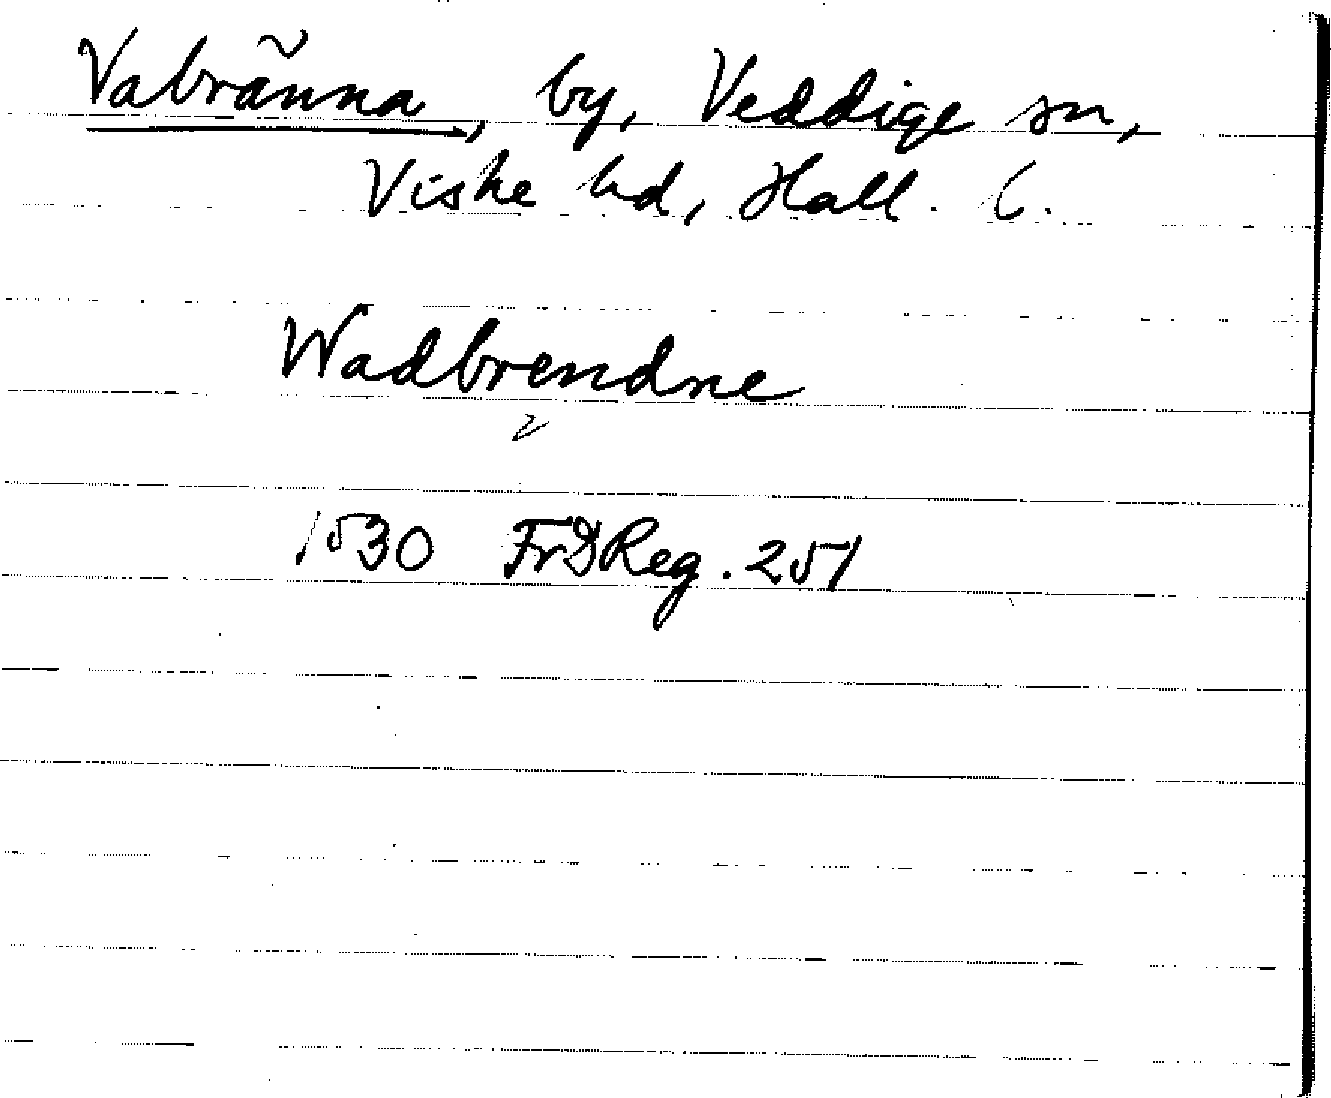 Vabränna, by, Veddige sn,
Viske hd, Hall. l.
Wadbrendne
1530 FrIReg. 251